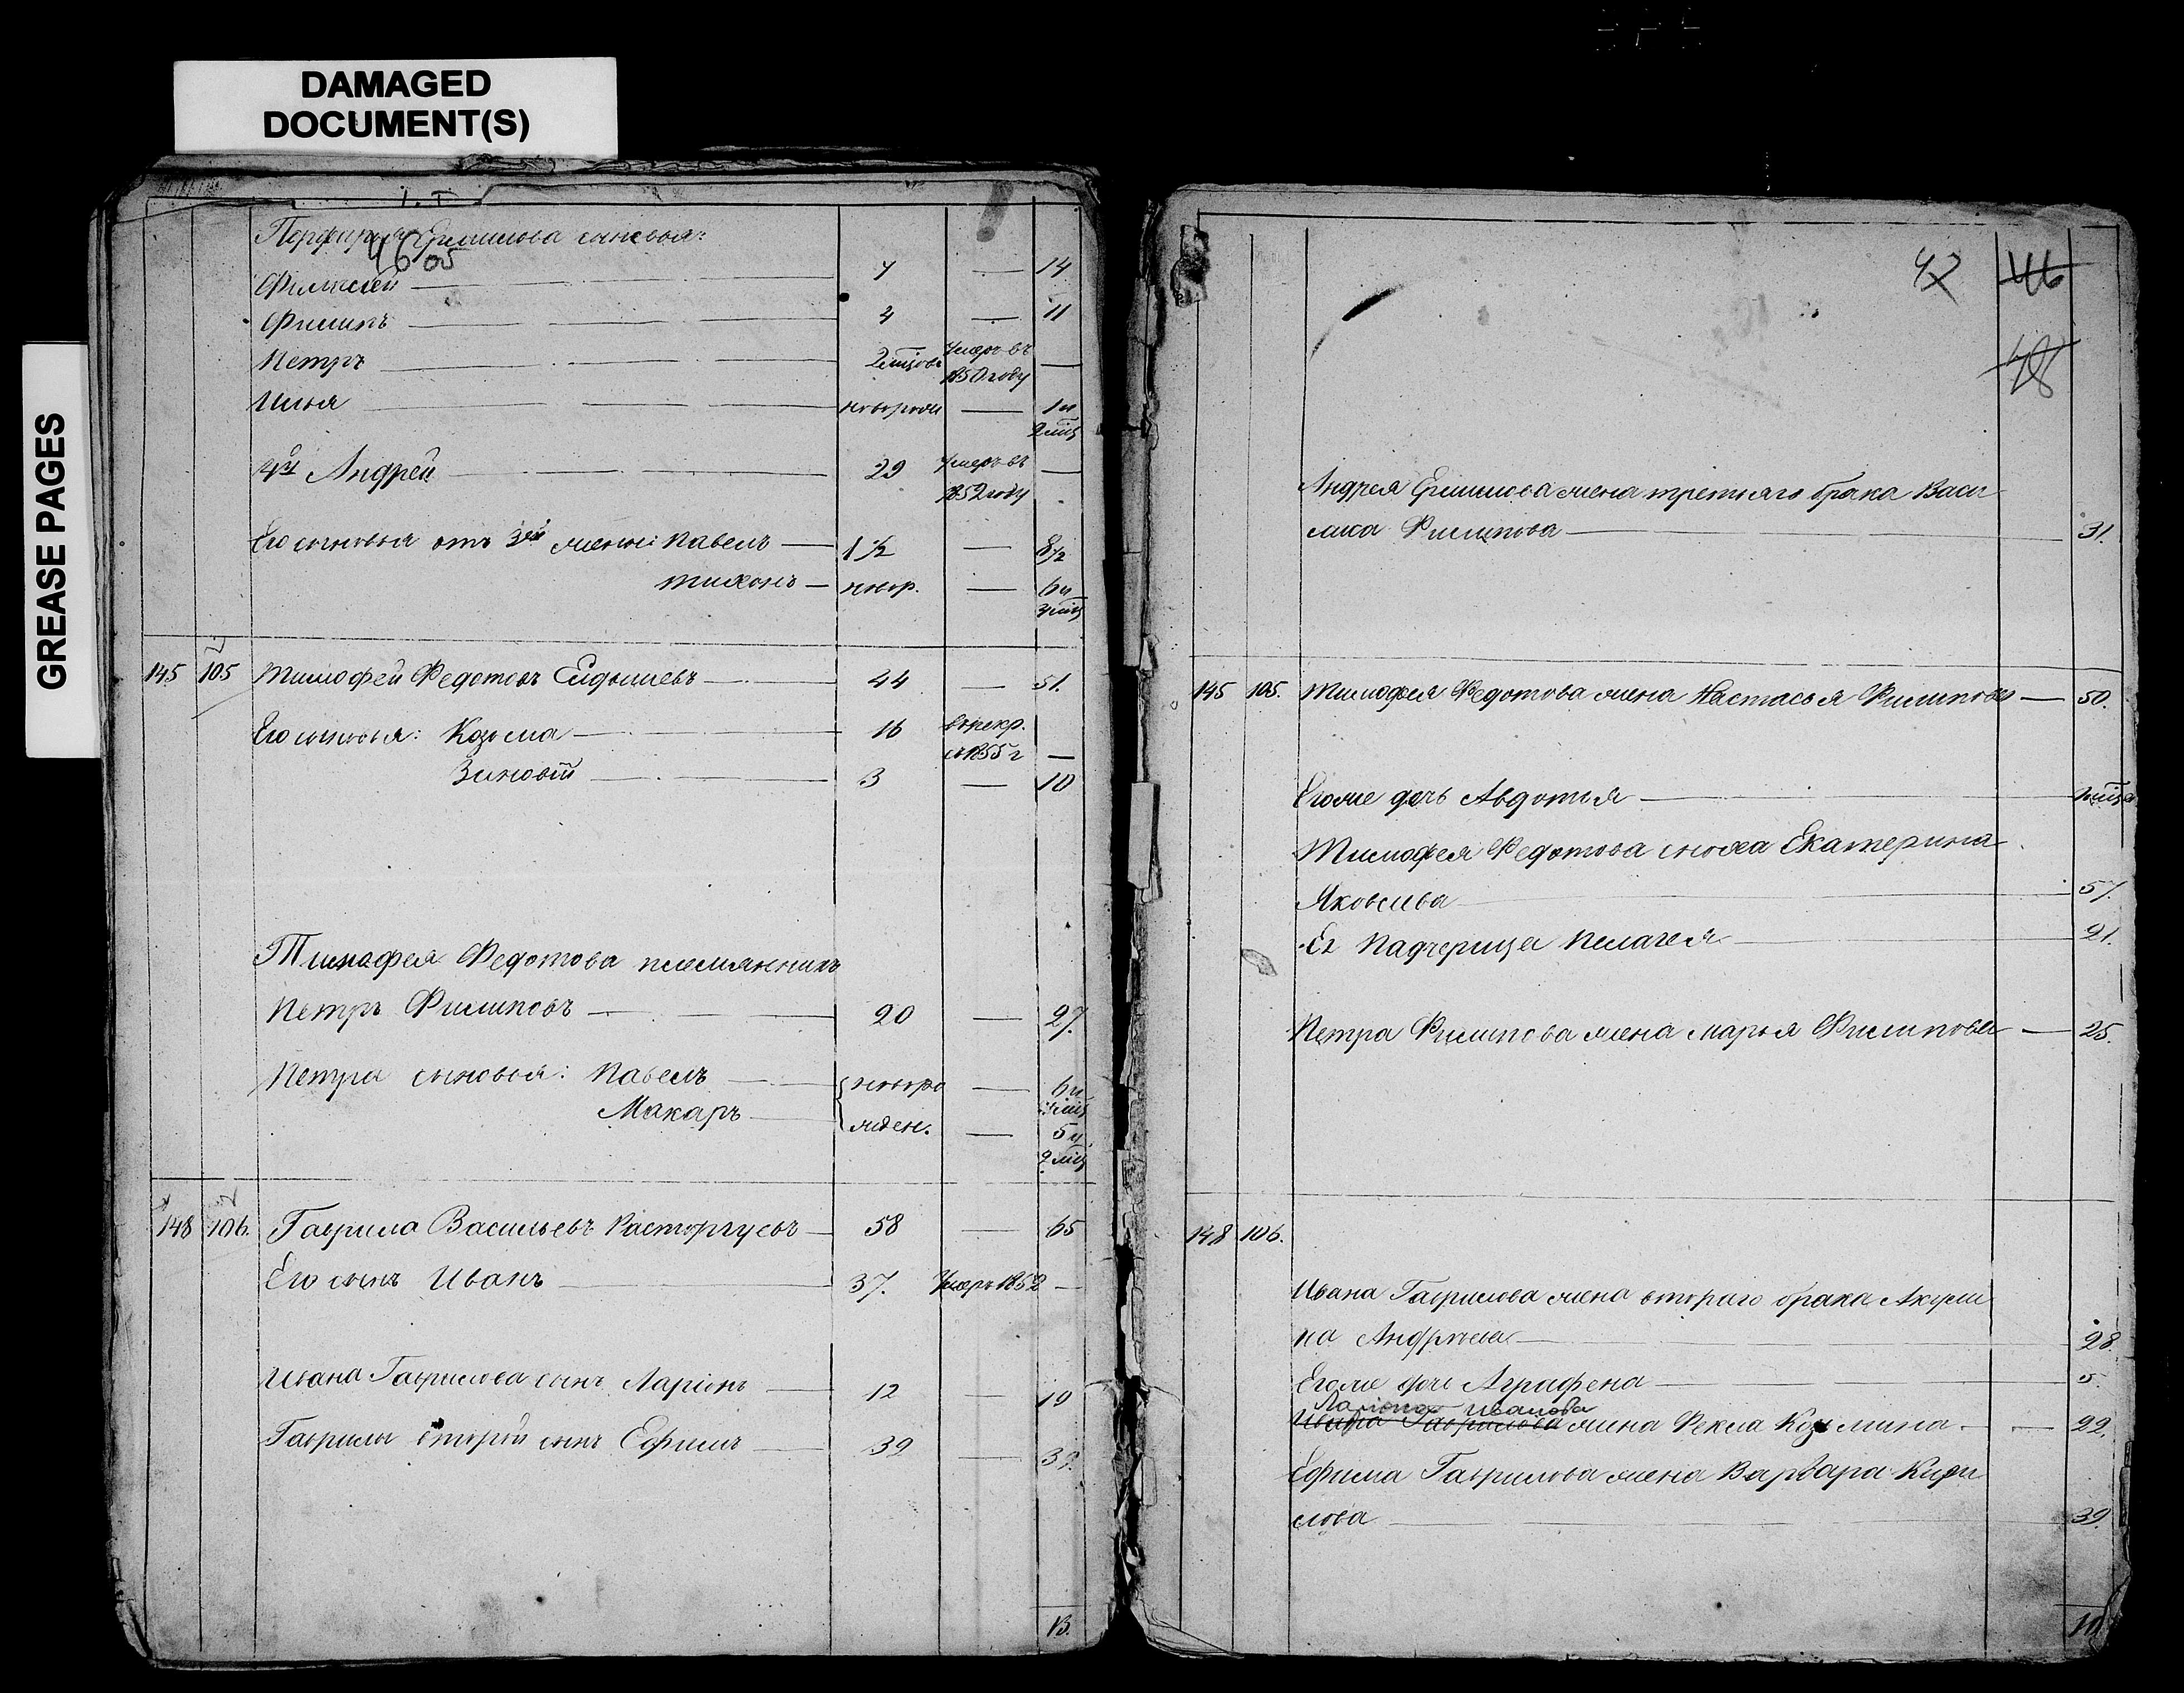 DAMAGED
DOCUMENT(S)
GREASE PAGES
Ермилова сыновья:
46 об
7 — 14
Филипъ 4 — 11
Петръ 2 мѣсяцов Умеръ въ 1850 году —
Илья новорожд — 1 и 2 мѣс
4й Андрей 29 Умеръ въ 1852 году —
Его сыновья отъ 3ей жены: Павелъ — 1 1/2 — 8 1/2
Тихонъ — новор. — 6 и мѣс
145 105 Тимофей Федотовъ 44 — 51.
Его сыновья: Козьма 16 в рекр. съ 1855 г —
Зиновій 3 — 10
Тимофея Федотова племянникъ
Петръ Филиповъ 20 — 27.
Петра сыновья: Павелъ новоро — 6 и мѣс
Макаръ жден. — 5 и 2 мѣс
148 106. Гаврила Васильевъ Расторгуевъ 58 — 65
Его сынъ Иванъ 37. Умеръ 1852 —
Ивана Гаврилова сынъ Ларіонъ 12 — 19
Гаврилы вторый сынъ Ефимъ 32 — 39.
13.
47 46
48
Андрея Ермилова жена третьяго брака Васи
лиса Филипова 31.
145 105. Тимофея Федотова жена Настасья Филипова — 50.
Егоже дочь Авдотья
Тимофея Федотова сноха Екатерина
Яковлева 57.
Ея падчерица Пелагея 21.
Петра Филипова жена Марья Филипова — 25.
148 106.
Ивана Гаврилова жена втораго брака Акули
на Андреева 28.
Егоже дочь Аграфена 5.
Лариона Иванова
Ивана Гаврилова жена Фекла Козьмина 22.
Ефима Гаврилова жена Варвара Кири
лова 39.
10